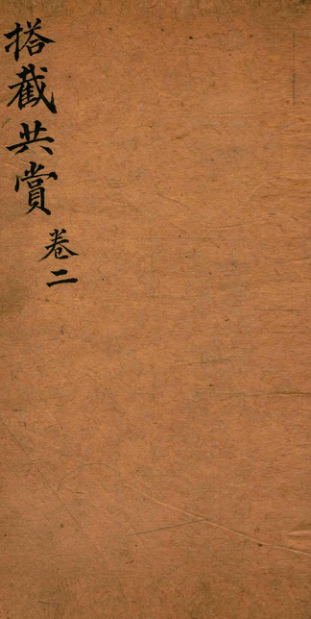 搭截共賞
卷二